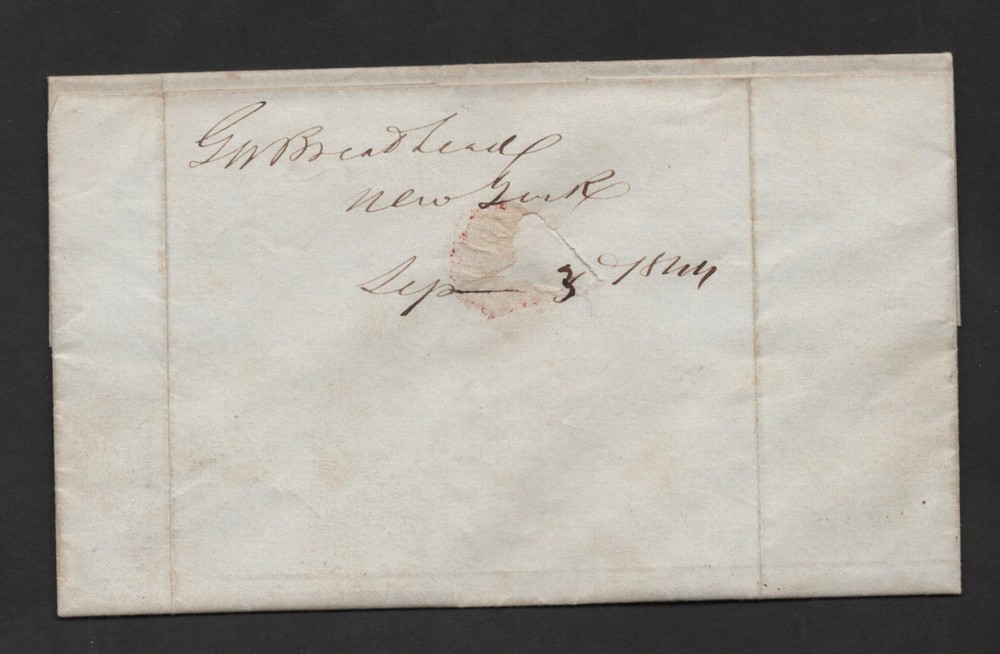 GW Broadhead
New York
Sep 3d 1844